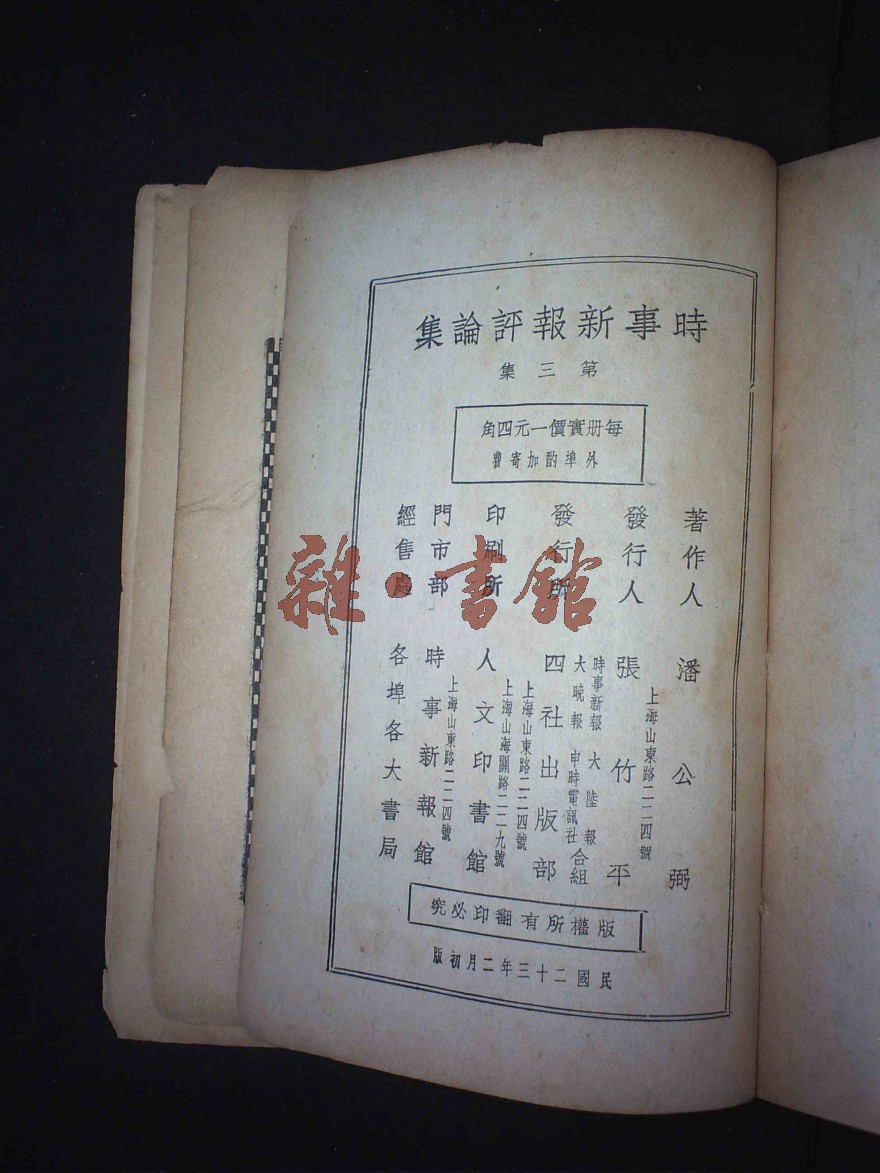 時事新報評論集
第三集
每册實價一元四角
外埠酌加寄費
著作人 潘公弼
發行人 張竹平
上海山東路二二四號
發行所 四社出版部
時事新報 大陸報
大晚報 申時電訊社 合組
上海山東路二二四號
印刷所 人文印書館
上海山海關路二二九號
門市部 時事新報館
上海山東路二二四號
經售處 各埠各大書局
版權所有翻印必究
民國二十三年二月初版
雜·書館